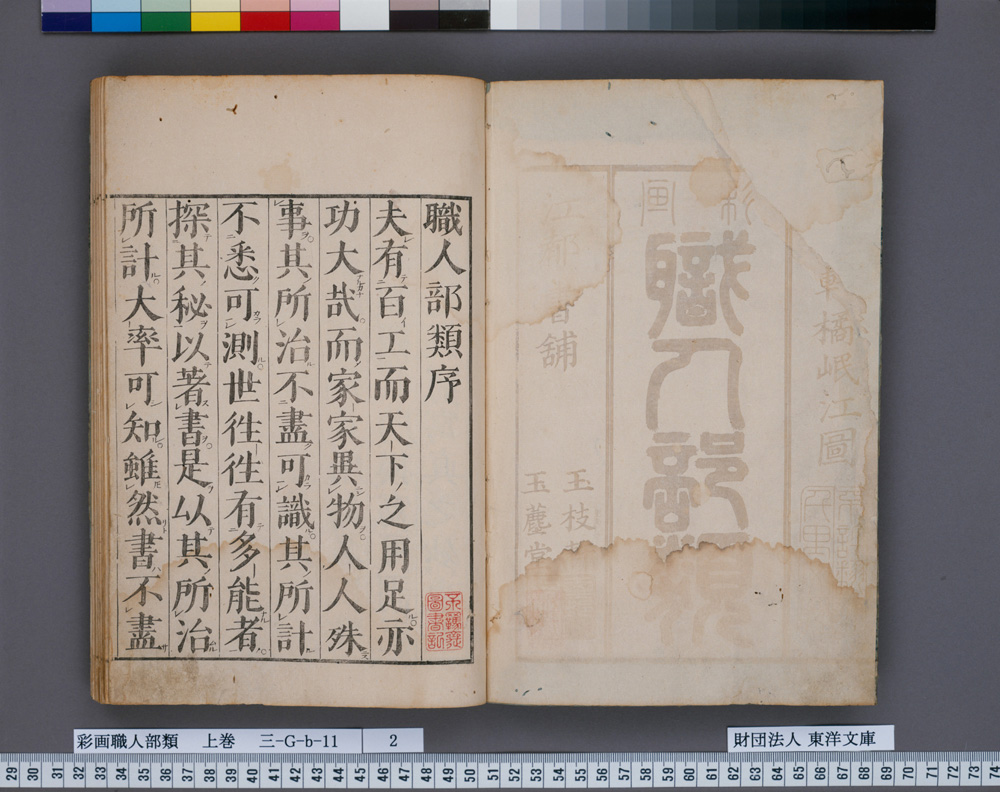 職人部類序
夫有百工而天下之用足亦
功大哉而家家異物人人殊
事其所治不盡可識其所計
不悉可測世徃徃有多能者
探其秘以著書是以其所治
所計大率可知雖然書不盡
橘岷江圖
画
職人部類
舗
玉枝
玉麈堂
彩画職人部類 上巻 三-G-b-11 2
財団法人 東洋文庫
29 30 31 32 33 34 35 36 37 38 39 40 41 42 43 44 45 46 47 48 49 50 51 52 53 54 55 56 57 58 59 60 61 62 63 64 65 66 67 68 69 70 71 72 73 74